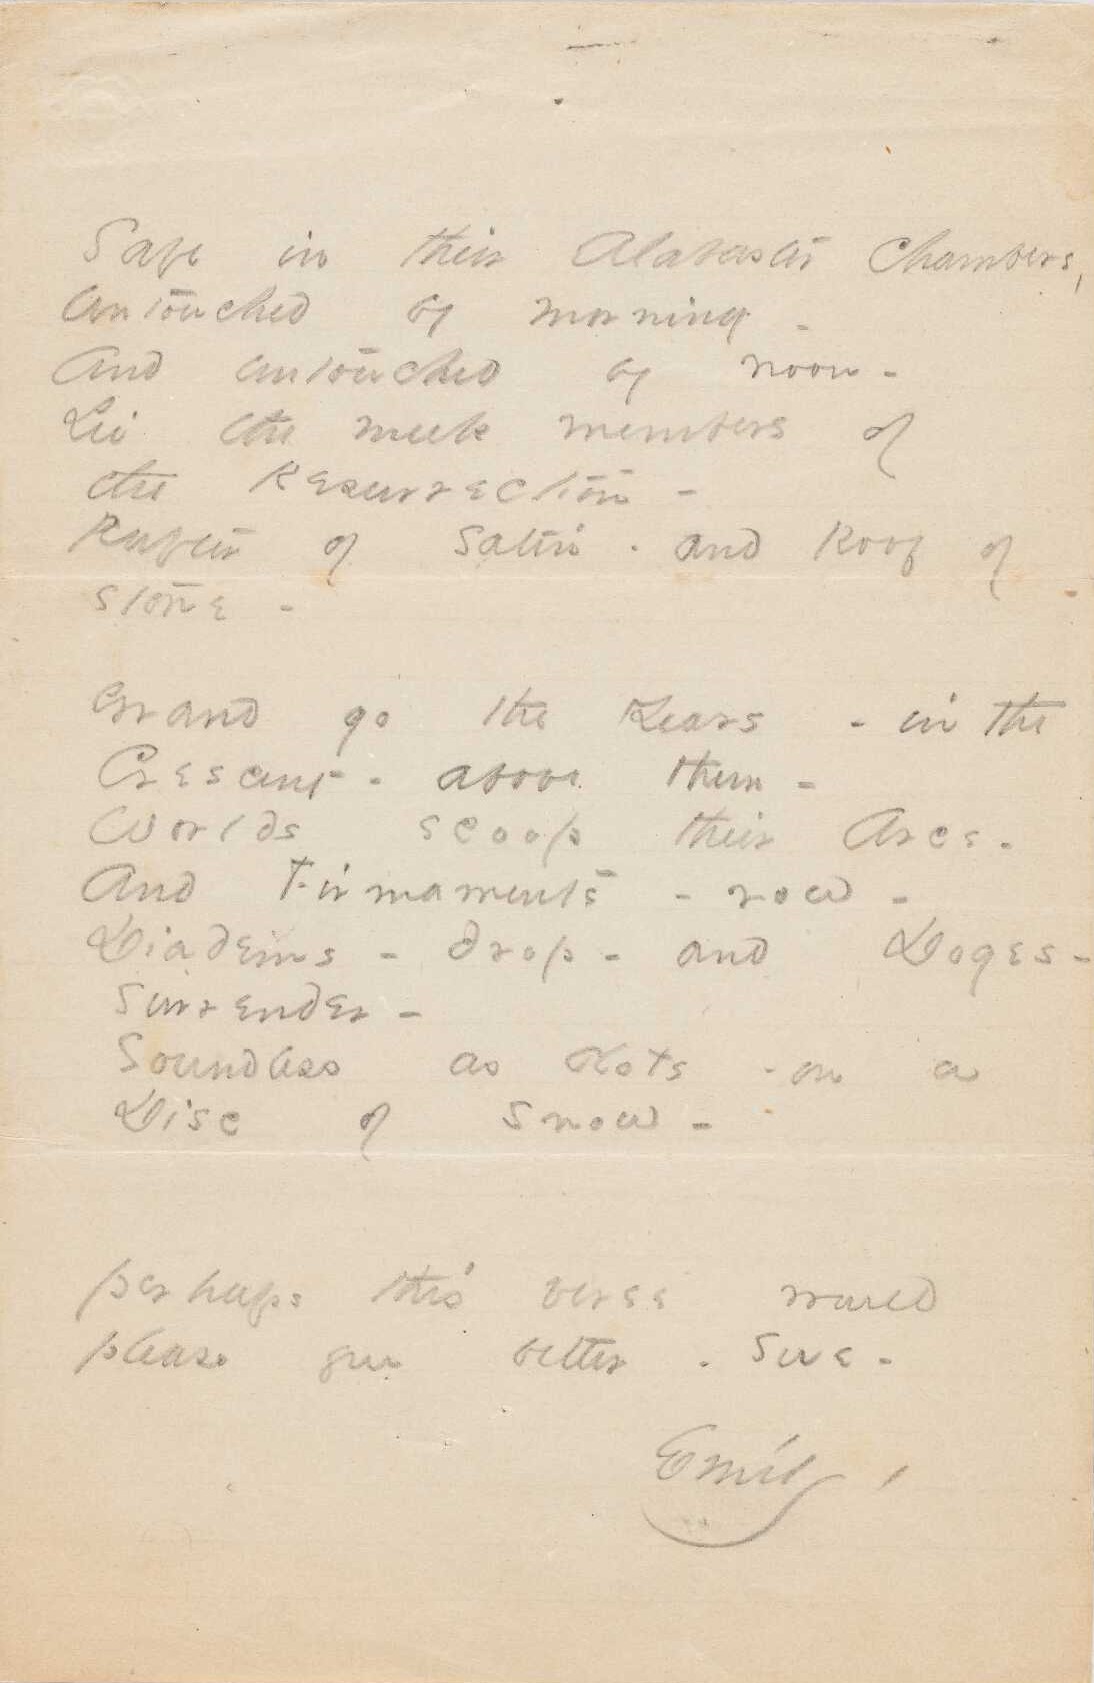 Safe in their Alabaster Chambers,
Untouched by morning -
And untouched by noon -
Lie the meek members of
the Resurrection -
Rafter of Satin - and Roof of
Stone -
Grand go the Years - in the
Crescent - above them -
Worlds scoop their Arcs -
And Firmaments - row -
Diadems - drop - and Doges -
Surrender -
Soundless as dots - on a
Disc of Snow -
Perhaps this verse would
please you better - Sue -
Emily